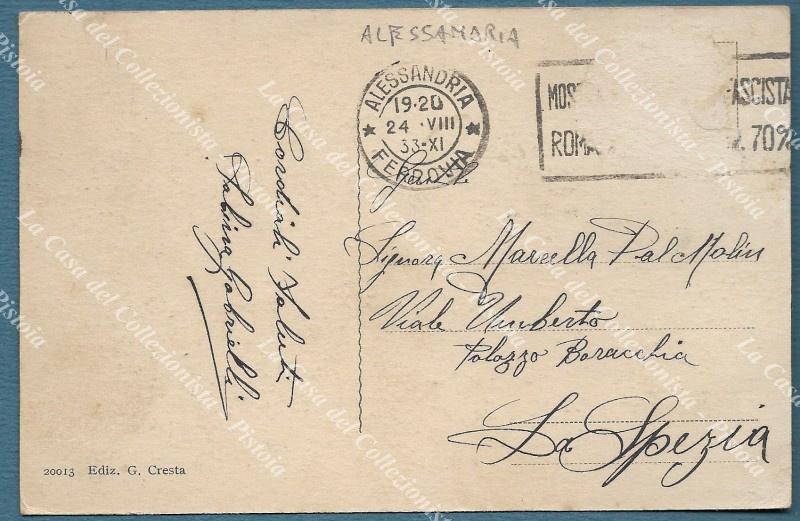 ALESSANDRIA
ALESSANDRIA
19·20
24 ·VIII
33-XI
FERROVIA
ASCISTA
ROMA
70%
Cordiali Saluti
Gabrielli
Signora Marcella Dal Molin
Viale Umberto
Palazzo Boracchia
La Spezia
20013 Ediz. G. Cresta
La Casa del Collezionista - Pistoia